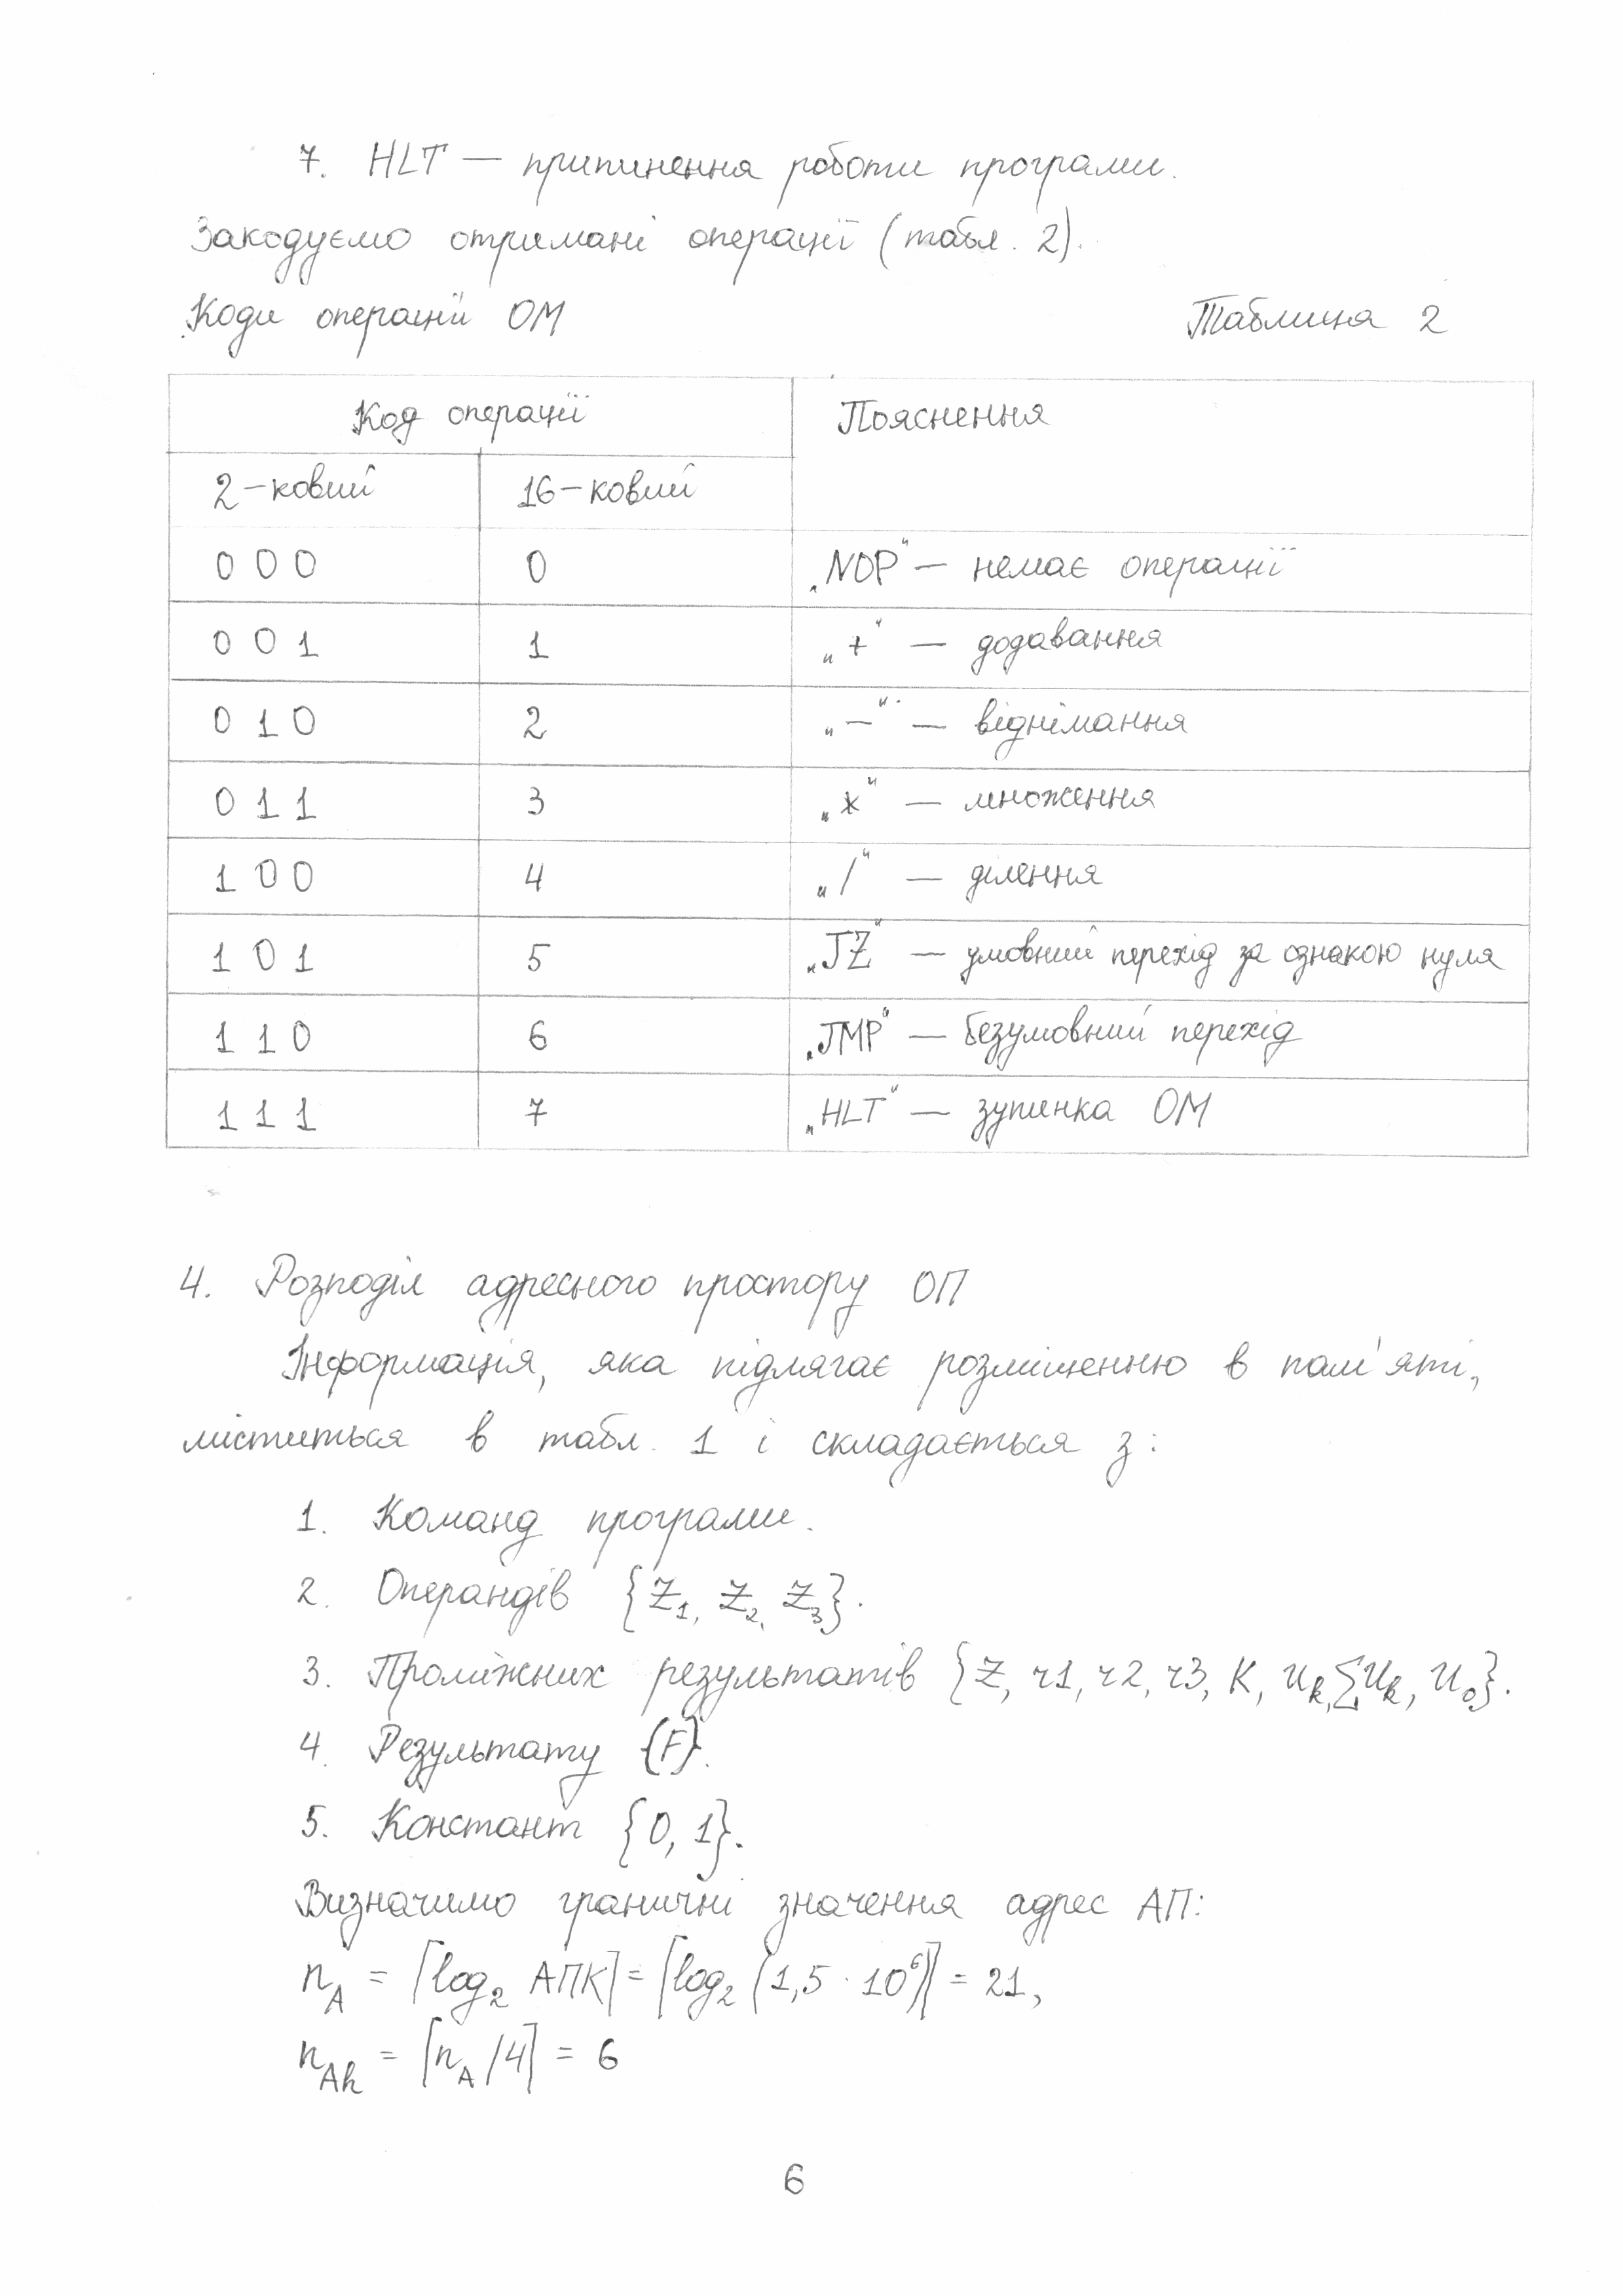 7. HLT — припинення роботи програми.
Закодуємо отримані операції (табл. 2).
Коди операцій ОМ Таблиця 2
Код операції Пояснення
2-ковий 16-ковий
0 0 0 0 „NOP“ — немає операції
0 0 1 1 „+“ — додавання
0 1 0 2 „−“ — віднімання
0 1 1 3 „*“ — множення
1 0 0 4 „/“ — ділення
1 0 1 5 „JZ“ — умовний перехід за ознакою нуля
1 1 0 6 „JMP“ — безумовний перехід
1 1 1 7 „HLT“ — зупинка ОМ
4. Розподіл адресного простору ОП
Інформація, яка підлягає розміщенню в пам'яті,
міститься в табл. 1 і складається з:
1. Команд програми.
2. Операндів {Z₁, Z₂, Z₃}.
3. Проміжних результатів {Z, r1, r2, r3, K, U_k, ∑U_k, U₀}.
4. Результату {F}.
5. Констант {0, 1}.
Визначимо граничні значення адрес АП:
n_A = ⌈log₂ АПК⌉ = ⌈log₂ (1,5 · 10⁶)⌉ = 21,
n_Ah = ⌈n_A /4⌉ = 6
6